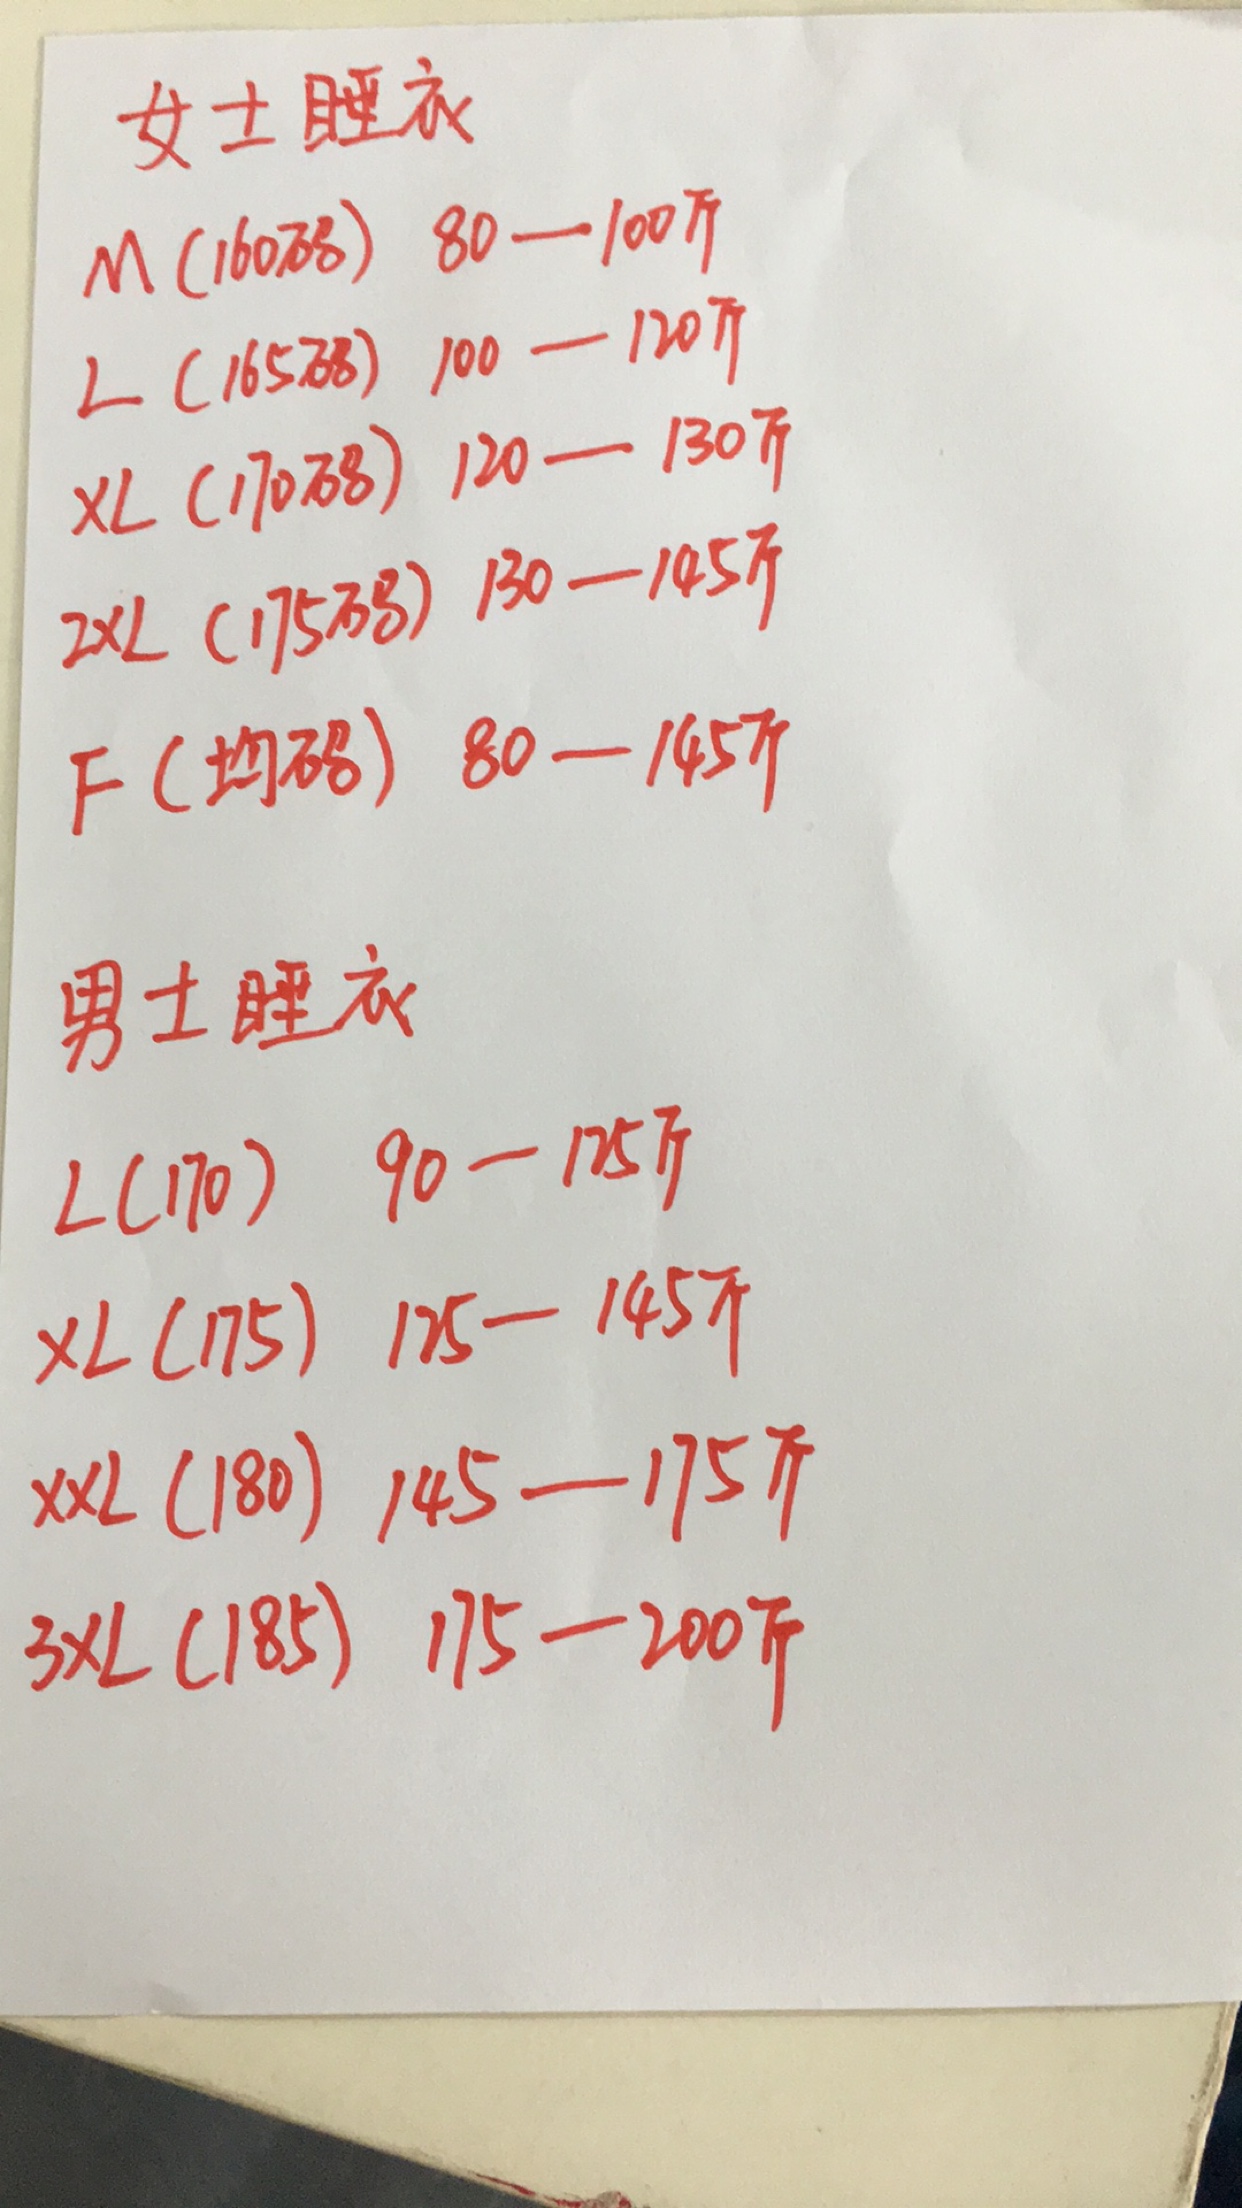 女士睡衣
M(160码) 80—100斤
L(165码) 100—120斤
XL(170码) 120—130斤
2XL(175码) 130—145斤
F(均码) 80—145斤
男士睡衣
L(170) 90—125斤
XL(175) 125—145斤
XXL(180) 145—175斤
3XL(185) 175—200斤